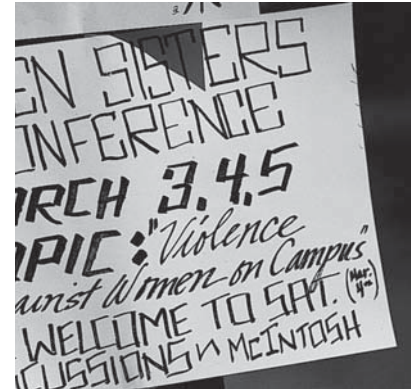 EN SISTERS
ONFERENCE
ARCH 3,4,5
OPIC: "Violence
ainst Women on Campus"
WELCOME TO SAT. (Mar. 4th)
CUSSIONS in McINTOSH